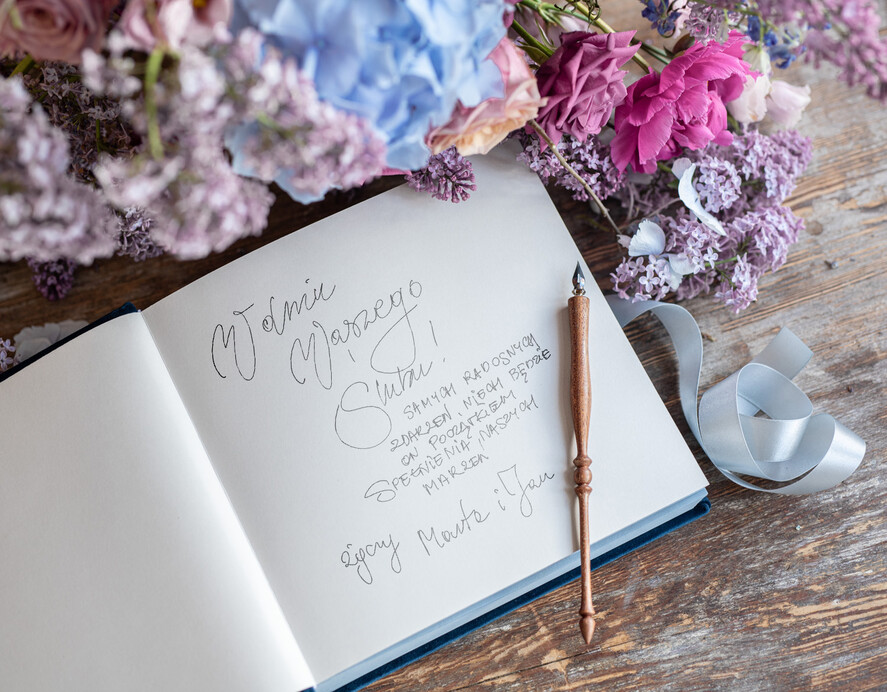 W dniu
Waszego
Ślubu!
SAMYCH RADOSNYCH
ZDARZEŃ, NIECH BĘDZIE
ON POCZĄTKIEM
SPEŁNIENIA NASZYCH
MARZEŃ
życzy Marta i Jan